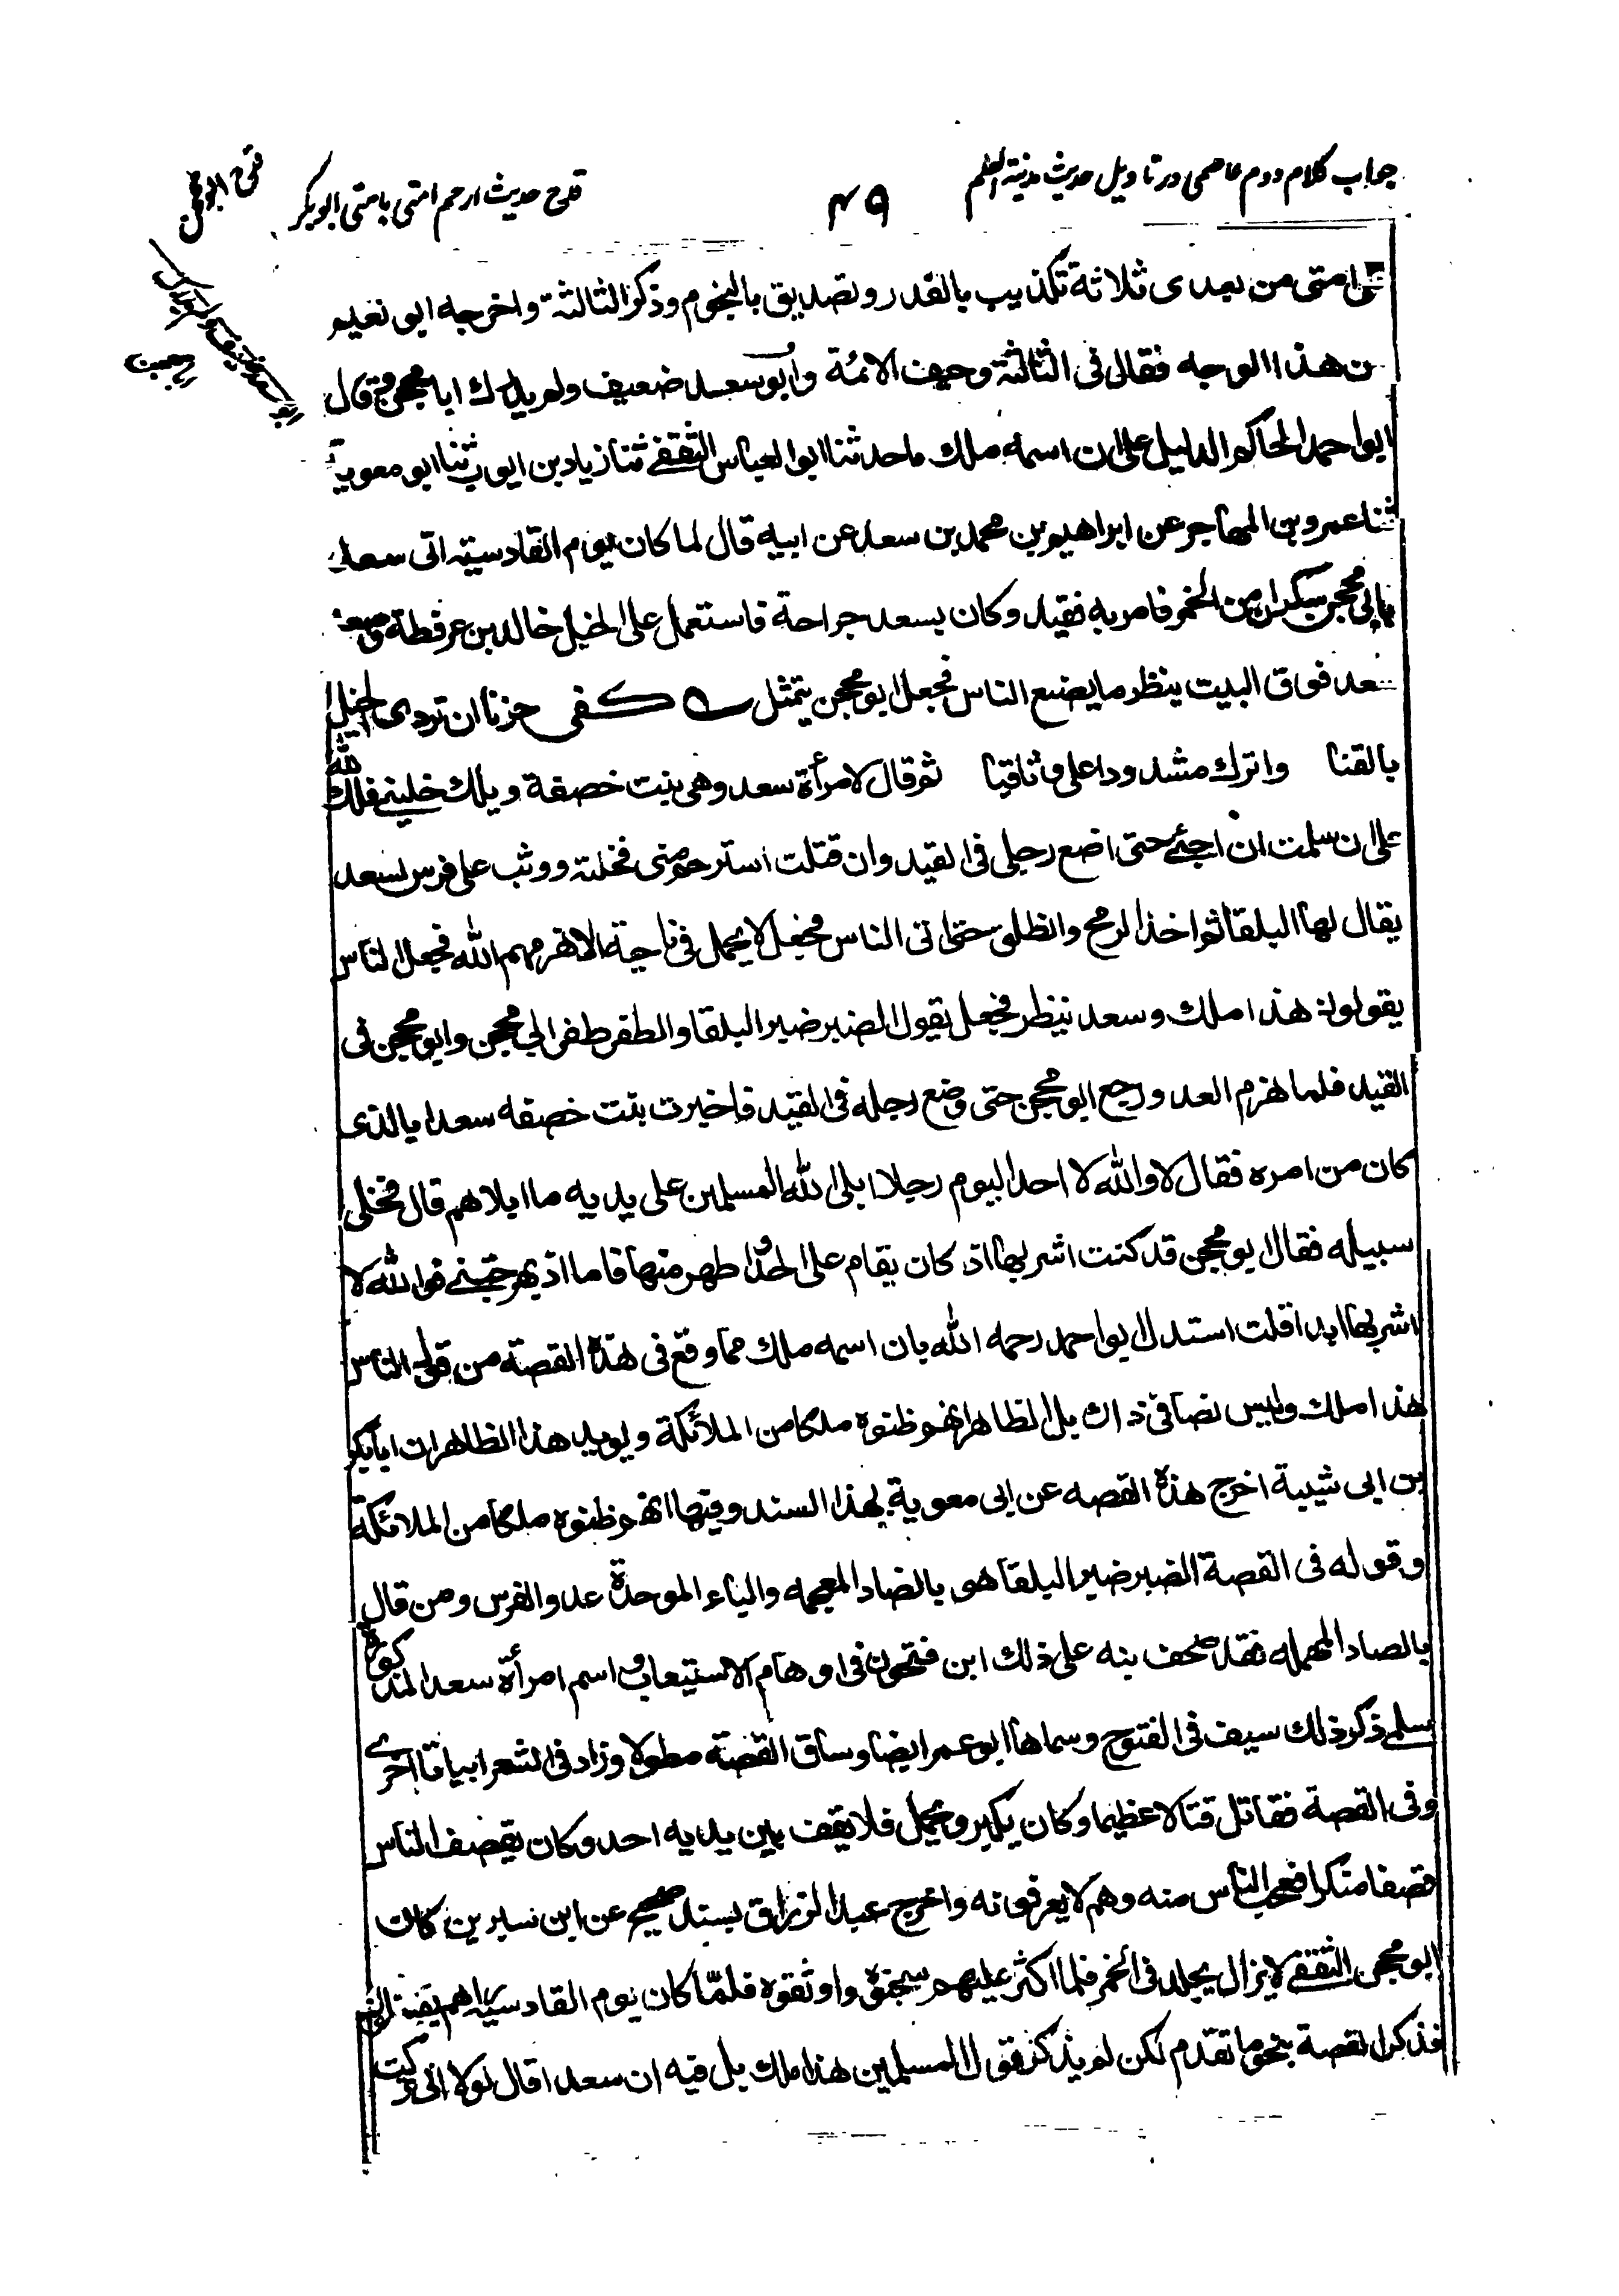 جواب کلام دوم عاصمی در تاویل حدیث مدینة العلم
۴۹
قدح حدیث ارحم امتی بامتی ابوبکر
امتى من بعدى ثلاثة تكذيب بالقدر وتصديق بالنجوم وذكر الثالثة واخرجه ابو نعيم
من هذا الوجه فقال فى الثالثة وحيف الائمة وابو سعد ضعيف ولم يدرك ابا محجن وقال
ابو احمد الحاكم الدليل على ان اسمه ملك ما حدثنا ابو العباس الثقفے ثنا زياد بن ايوب ثنا ابو معوية
ثنا عمرو بن المهاجر عن ابراهيم بن محمد بن سعد عن ابيه قال لما كان يوم القادسية اتى سعد
بابى محجن سكران من الخمر فامر به فقيد وكان بسعد جراحة فاستعمل على الخيل خالد بن عرفطة وصعد
سعد فوق البيت ينظر ما يصنع الناس فجعل ابو محجن يتمثل كفى حزنا ان تردى الخيل
بالقنا واترك مشدودا على وثاقيا ثم قال لامرأة سعد وهى بنت خصفة ويلك خلينے فلك لله
على ان سلمت ان اجئے حتى اضع رجلى فى القيد وان قتلت استرحتم منى فخلته ووثب على فرس لسعد
يقال لها البلقا ثم اخذ الرمح وانطلق حتى اتى الناس فجعل لا يحمل فى ناحية الا هزمهم الله فجعل الناس
يقولون هذا ملك وسعد ينظر فجعل يقول الضبر ضبر البلقا والطفر طفر ابى محجن وابو محجن فى
القيد فلما هزم العدو رجع ابو محجن حتى وضع رجله فى القيد فاخبرت بنت خصفه سعدا بالذى
كان من امره فقال لا والله لا احد اليوم رجلا ابلى الله المسلمين على يديه ما ابلاهم قال فخلى
سبيله فقال ابو محجن قد كنت اشربها اذ كان يقام على الحد واطهر منها فاما اذ بهرجتنے فوالله لا
اشربها ابدا قلت استدل ابو احمد رحمه الله بان اسمه ملك مما وقع فى هذه القصة من قول الناس
هذا ملك وليس نصا فى ذاك بل الظاهر انهم ظنوه ملكا من الملائكة ويويد هذا الظاهر ان ابا بكر
بن ابى شيبة اخرج هذه القصه عن ابى معوية بهذا السند وفيها انهم ظنوه ملكا من الملائكة
وقوله فى القصة الضبر ضبر البلقا هو بالضاد المعجمه والباء الموحدة عدو الفرس ومن قال
بالصاد المهمله فقد صحف نبه على ذلك ابن فتحون فى اوهام الاستيعاب واسم امرأة سعد المذكورة
سلمے ذكر ذلك سيف فى الفتوح وسماها ابو عمر ايضا وساق القصة مطولا وزاد فى الشعر ابياتا اخرے
وفى القصة فقاتل قتالا عظيما وكان يكبر ويحمل فلا يقف بين يديه احد وكان يقصف الناس
قصفا منكرا فعجب الناس منه وهم لا يعرفونه واخرج عبد الرزاق بسند صحيح عن ابن سيرين كان
ابو محجن الثقفے لا يزال يجلد فى الخمر فلما اكثر عليهم سجنوه واوثقوه فلمّا كان يوم القادسية راهم
فذكر القصة بنحو ما تقدم لكن لم يذكر قول المسلمين هذا ملك بل فيه ان سعدا قال لولا انى تركت